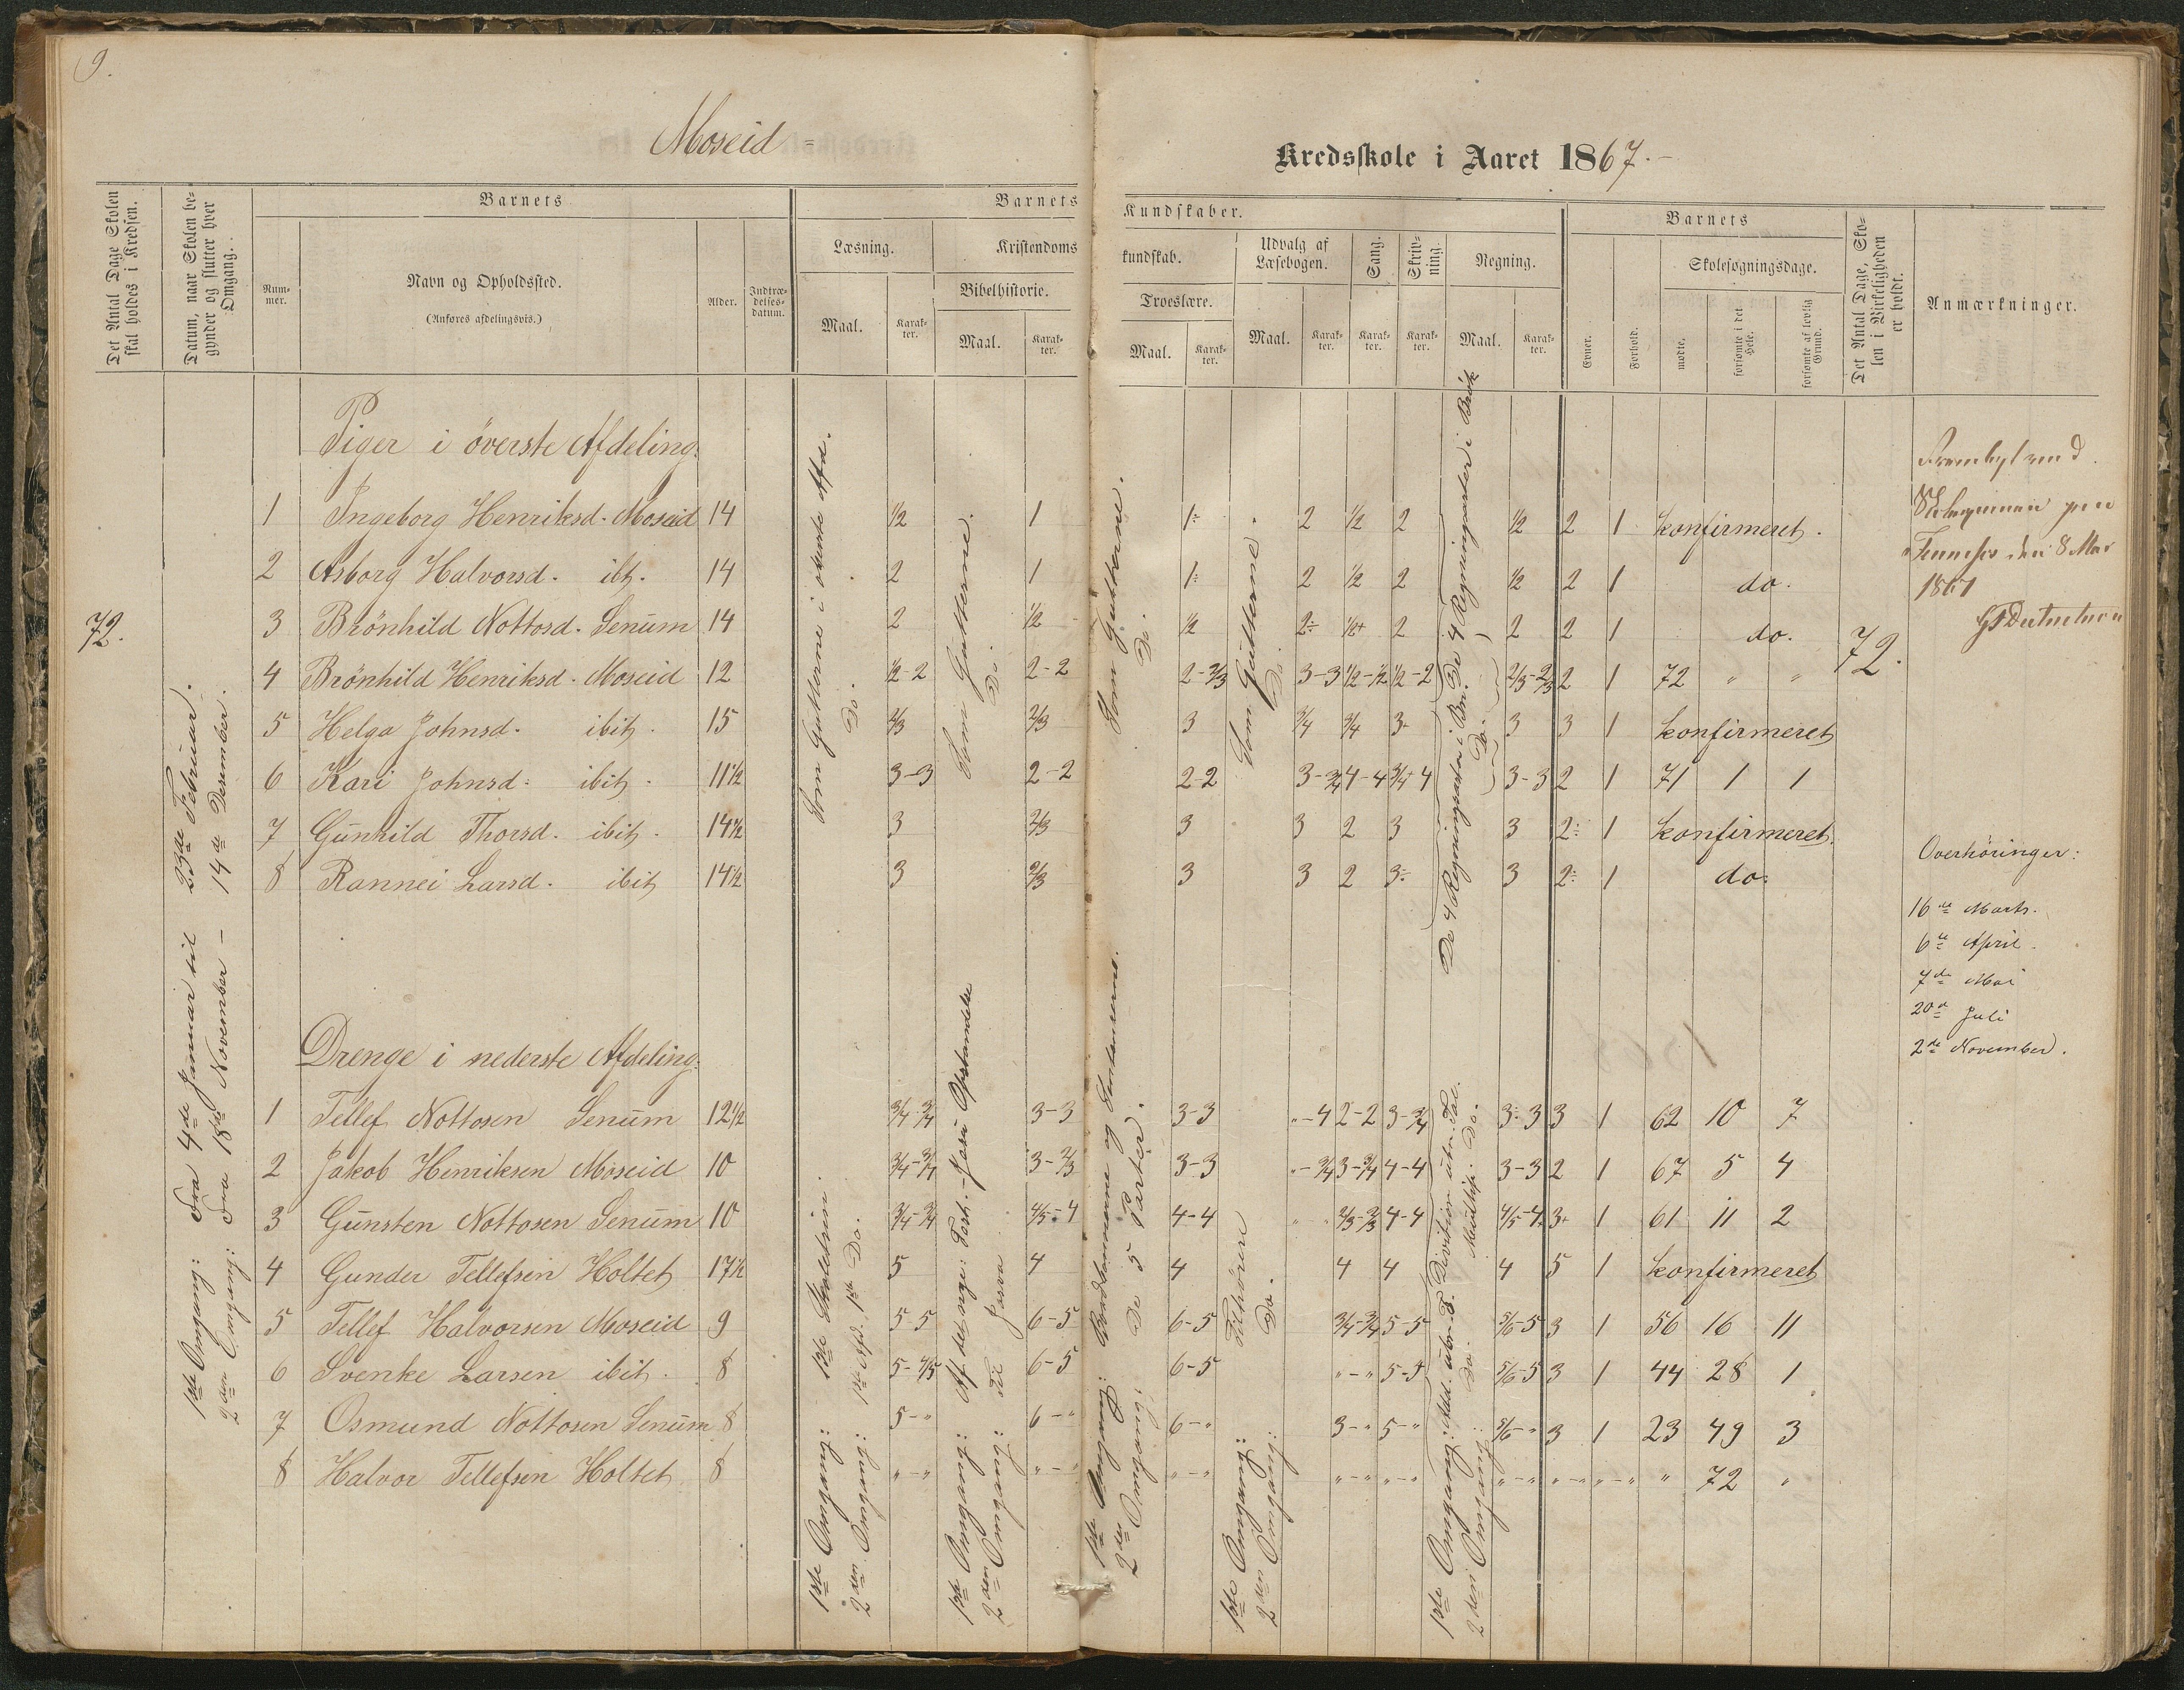 9.
Moseid =
Kredsskole i Aaret 1867.-
Det Antal Dage Skolen skal holdes i Kredsen.
Datum, naar Skolen begynder og slutter hver Omgang.
Barnets
Nummer.
Navn og Opholdssted.
(Anføres afdelingsvis.)
Alder.
Indtrædelsesdatum.
Barnets Kundskaber.
Læsning.
Maal.
Karakter.
Kristendomskundskab.
Bibelhistorie.
Maal.
Karakter.
Troeslære.
Maal.
Karakter.
Udvalg af Læsebogen.
Maal.
Karakter.
Sang.
Karakter.
Skrivning.
Karakter.
Regning.
Maal.
Karakter.
Barnets
Evner.
Forhold.
Skolesøgningsdage.
mødte.
forsømte i det Hele.
forsømte af lovlig Grund.
Det Antal Dage, Skolen i Virkeligheden er holdt.
Anmærkninger.
72.
1ste Omgang: Fra 4de Januar til 23de Februar.
2den Omgang: Fra 18de November - 14de Desember.
Piger i överste Afdeling.
Som Gutterne i överste Afd.
Do.
Som Gutterne.
Do.
Som Gutterne.
Do.
Som Gutterne.
Do.
De 4 Regningsarter i Bn. De 4 Regningsarter i Brök
Do.
1 Ingeborg Henriksd. Moseid 14 1/2 1 1÷ 2 1/2 2 1/2 2 1 konfirmeret.
2 Asborg Halvorsd. ibt. 14 2 1 1÷ 2 1/2 2 1/2 2 1 do.
3 Brönhild Nottosd. Senum 14 2 1/2 1/2 2÷ 1/2+ 2 2 2 1 do.
4 Brönhild Henriksd. Moseid 12 1/2-2 2-2 2-2/3 3-3 1/2-1/2 1/2-2 2/3-2/3 2 1 72 " "
5 Helga Johnsd. ibit. 15 2/3 2/3 3 3/4 3/4 3+ 3 3 1 konfirmeret
6 Kari Johnsd. ibit. 11 1/2 3-3 2-2 2-2 3-3/4 4-4 3/4+4 3-3 2 1 71 1 1
7 Gunhild Thorsd. ibit. 14 1/2 3 2/3 3 3 2 3 3 2÷ 1 konfirmeret.
8 Rannei Larsd. ibit 14 1/2 3 2/3 3 3 2 3÷ 3 2÷ 1 do.
72.
den 8 Mai
1867
Overhöringer:
16de Marts.
6te April.
7de Mai
20de Juli
2de November.
Drenge i nederste Afdeling.
1ste Omgang:
2den Omgang: 1ste Afd. 1ste Do.
1ste Omgang: Af det nye Test. - Jesu Opstandelse
2den Omgang: Til
1ste Omgang:
2den Omgang: De 5 Parter.
1ste Omgang: Tilhörere
2den Omgang: Do.
1ste Omgang:
2den Omgang: Do.
1 Tellef Nottosen Senum 12 1/2 3/4-3/4 3-3 3-3 "-4 2-2 3-3/4 3÷3 3 1 62 10 7
2 Jakob Henriksen Moseid 10 3/4-3/4 3-2/3 3-3 "-3/4 3-3/4 4-4 3-3 2 1 67 5 4
3 Gunsten Nottosen Senum 10 3/4-3/4 4/5-4 4-4 " " 2/3-2/3 4-4 4/5-4 3+ 1 61 11 2
4 Gunder Tellefsen Holtet 17 1/2 5 4 4 4 4 4 5 1 konfirmeret
5 Tellef Halvorsen Moseid 9 5-5 6-5 6-5 3/4-3/4 5-5 5/6-5 3 1 56 16 11
6 Svenke Larsen ibit. 8 5-4/5 6-5 6-5 "-" 5-5 5/6-5 3 1 44 28 1
7 Osmund Nottosen Senum 8 5-" 6-" 6-" 3-" 5-" 5/6-" 3 1 23 49 3
8 Halvor Tellefsen Holtet 8 "-" "-" "-" "-" "-" "-" "-" "-" " 72 "